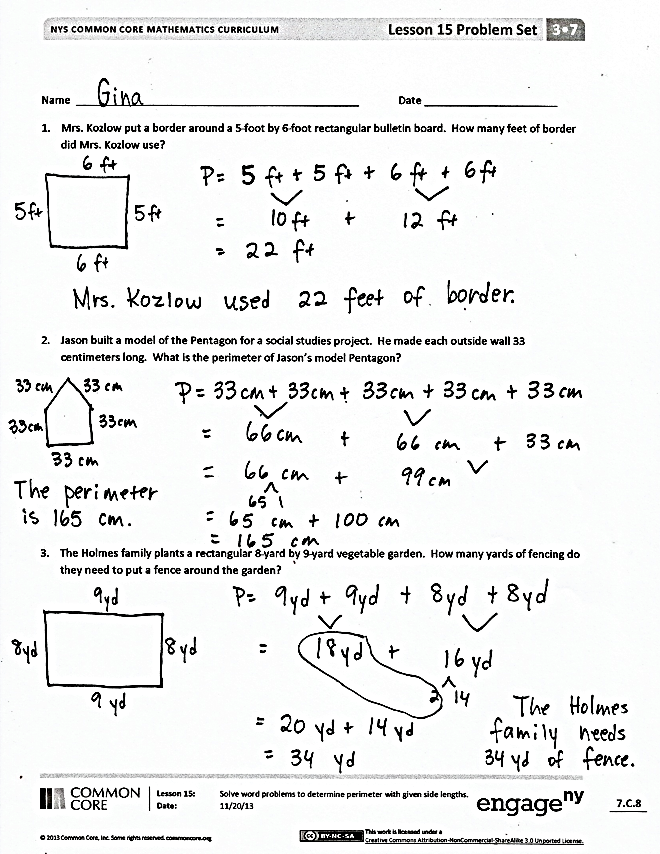 NYS COMMON CORE MATHEMATICS CURRICULUM Lesson 15 Problem Set 3•7
Name Gina Date
1. Mrs. Kozlow put a border around a 5-foot by 6-foot rectangular bulletin board. How many feet of border
did Mrs. Kozlow use?
6 ft
5ft 5ft
6 ft
P= 5 ft + 5 ft + 6 ft + 6ft
= 10 ft + 12 ft
= 22 ft
Mrs. Kozlow used 22 feet of border.
2. Jason built a model of the Pentagon for a social studies project. He made each outside wall 33
centimeters long. What is the perimeter of Jason's model Pentagon?
33 cm 33 cm
33cm 33cm
33 cm
P= 33cm + 33cm + 33cm + 33cm + 33 cm
= 66cm + 66 cm + 33 cm
= 66 cm + 99 cm
65 1
= 65 cm + 100 cm
= 165 cm
The perimeter
is 165 cm.
3. The Holmes family plants a rectangular 8-yard by 9-yard vegetable garden. How many yards of fencing do
they need to put a fence around the garden?
9yd
8yd 8yd
9 yd
P= 9yd + 9yd + 8yd + 8yd
= 18yd + 16 yd
2 14
= 20 yd + 14 yd
= 34 yd
The Holmes
family needs
34 yd of fence.
COMMON CORE
Lesson 15: Solve word problems to determine perimeter with given side lengths.
Date: 11/20/13
engageny
7.C.8
© 2013 Common Core, Inc. Some rights reserved. commoncore.org
(cc) BY-NC-SA
This work is licensed under a
Creative Commons Attribution-NonCommercial-ShareAlike 3.0 Unported License.